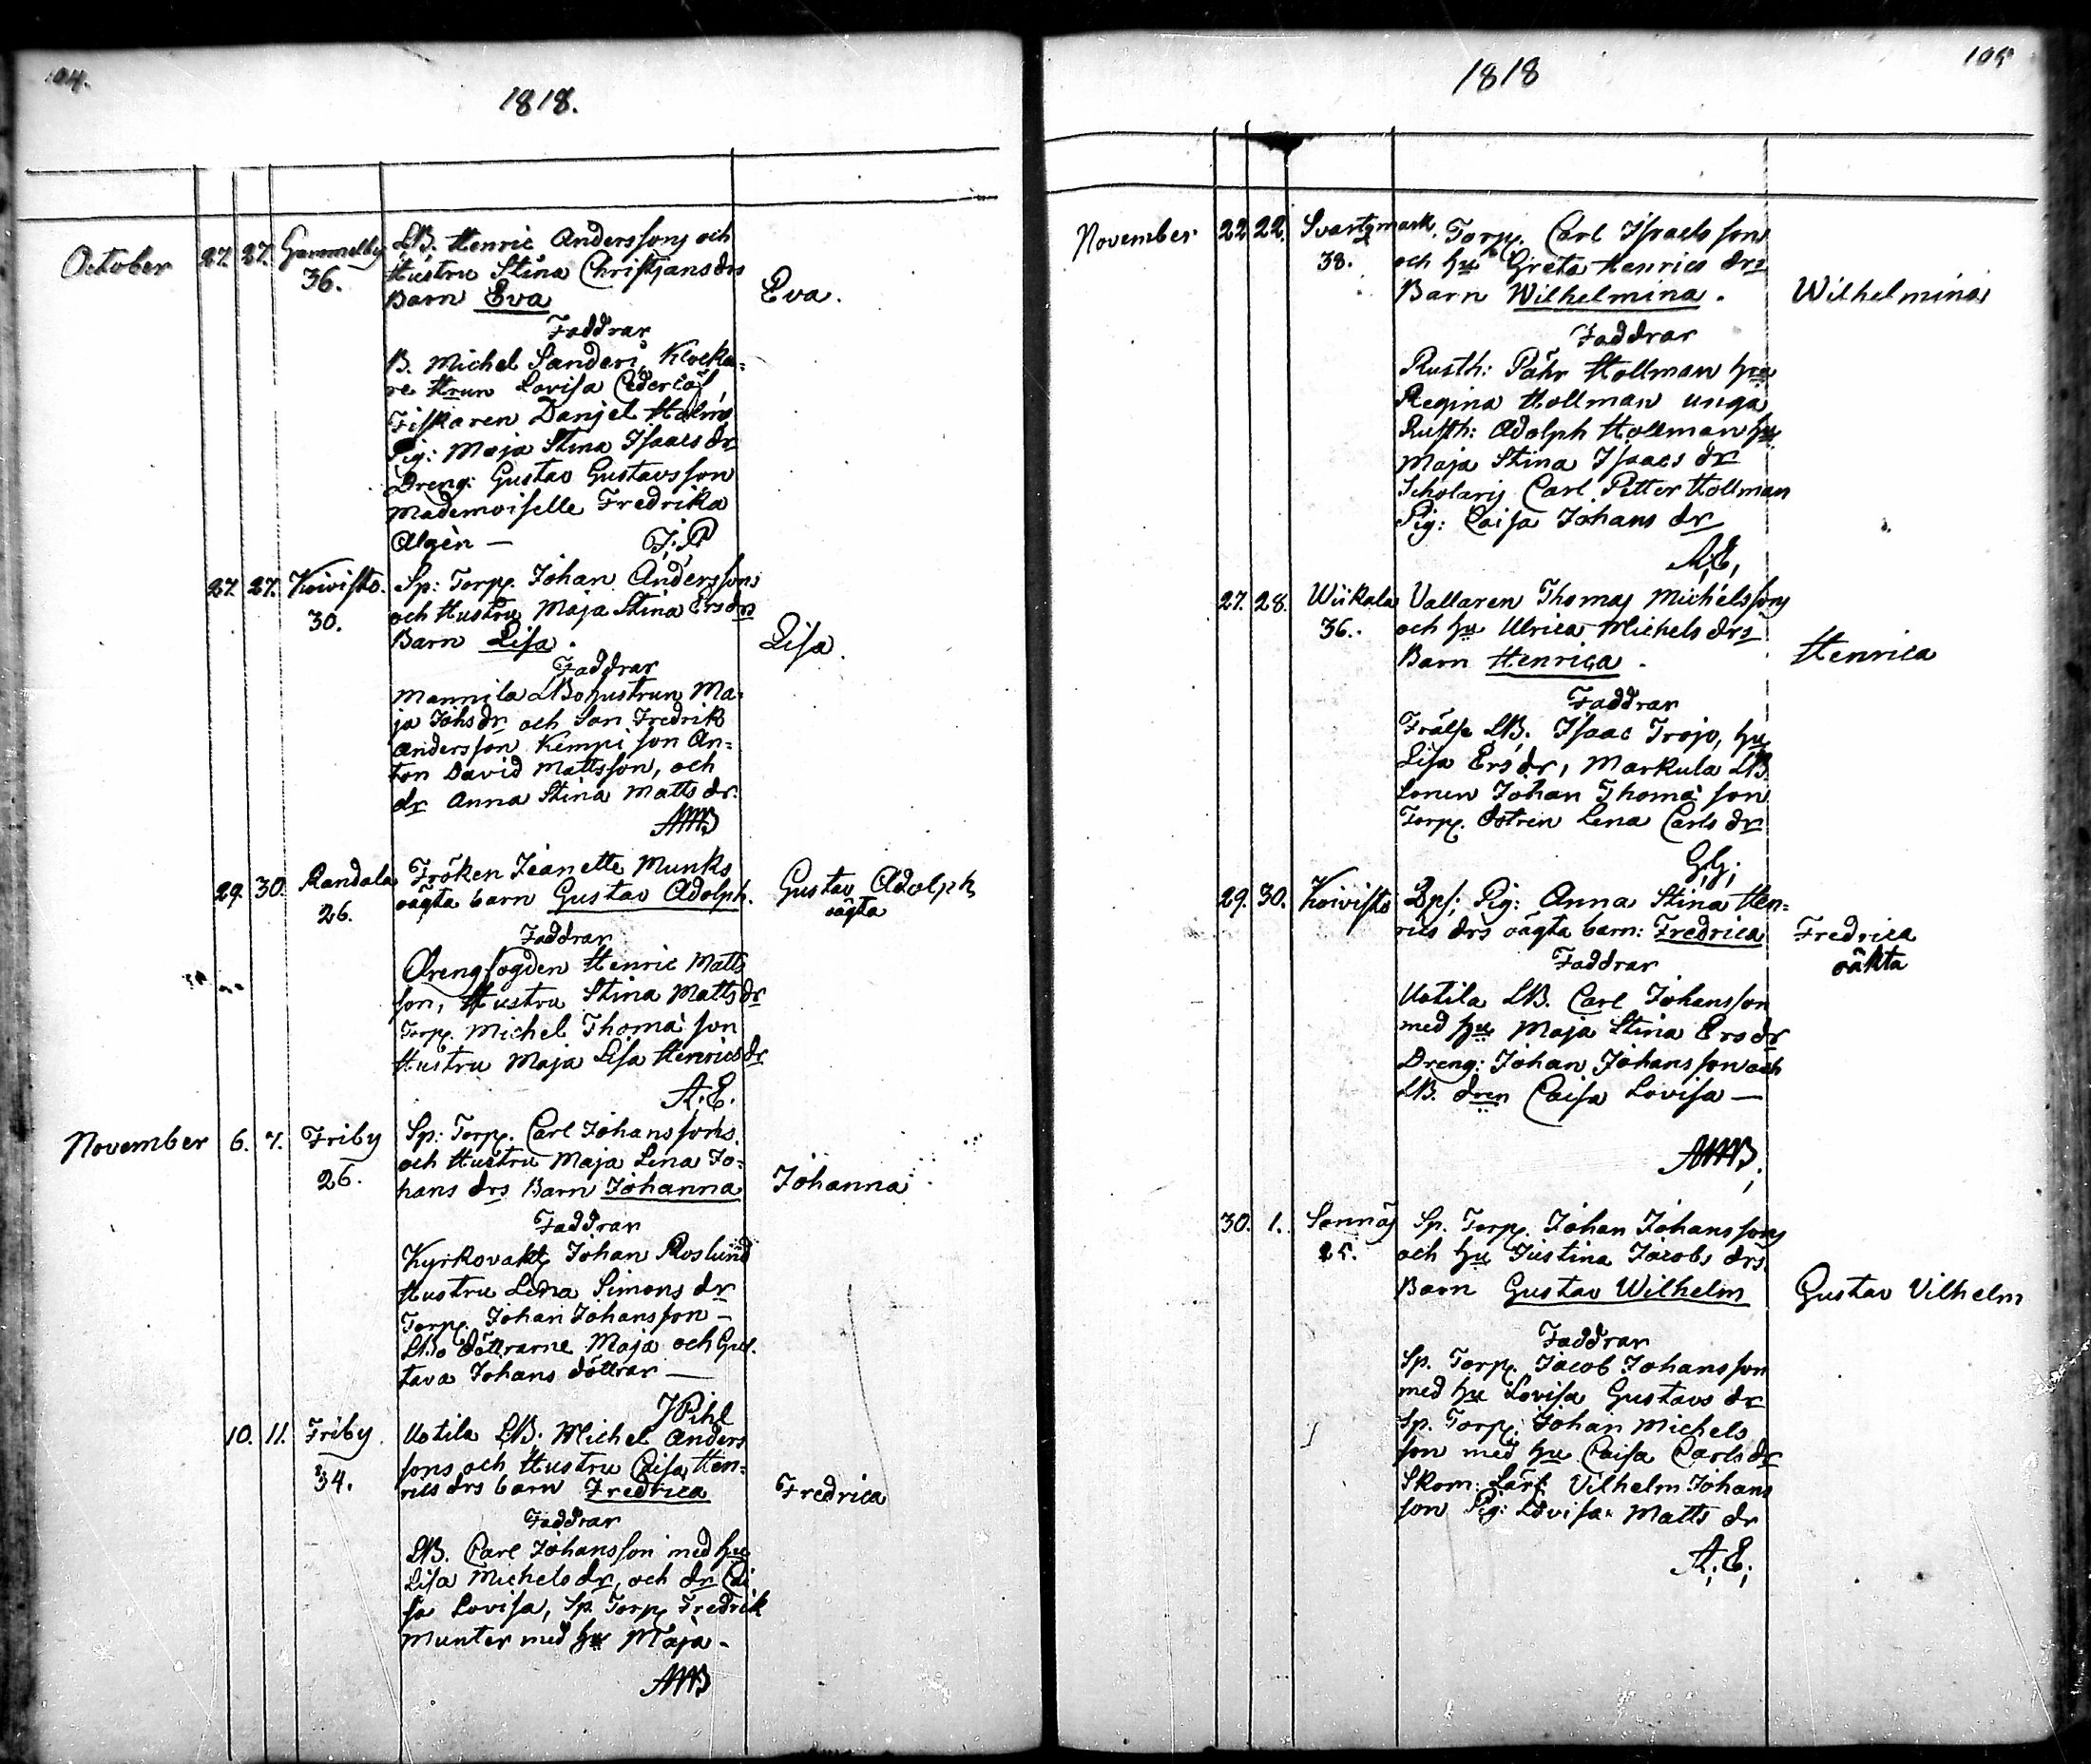 104.
1818.
October 27. 27. Gammelby LB. Henric Anderssons och
36. Hustru Stina Christjans drs
Barn Eva Eva.
Faddrar
B. Michel Sanderi, Klocka=
re Hrun Lovisa Cederlöf,
Fiskaren Danjel Holm
Pig: Maja Stina Isaacs dr
Dreng: Gustav Gustavsson
Mademoiselle Fredrika
Algèn — J. P
27. 27. Koivisto. Sp: Torp. Johan Anderssons
30. och Hustru Maja Stina Ersdrs
Barn Lisa. Lisa.
Faddrar
Mannila LBohustrun Ma=
ja Johs dr och Son Fredrik
Andersson Kempi son An=
ton David Mattsson, och
dr Anna Stina Matts dr.
AMB
29. 30. Randala Fröken Jeanette Munks
26. oägta barn Gustav Adolph. Gustav Adolph
oägta
Faddrar
Drengfogden Henric Matts
son, Hustru Stina Matts dr
Torp. Michel Thomä son
Hustru Maja Lisa Henrics dr
A. E.
November 6. 7. Friby Sp: Torp. Carl Johanssons
26. och Hustru Maja Lena Jo=
hans drs Barn Johanna Johanna
Faddrar
Kyrkovakt Johan Roslund
Hustru Lena Simons dr
Torp. Johan Johansson —
LBo döttrarne Maja och Gus=
tava Johans döttrar —
J Pihl
10. 11. Friby Uotila LB. Michel Anders
34. sons och Hustru Caisa Hen=
rics drs barn Fredrica Fredrica
Faddrar
LB. Carl Johansson med hu
Lisa Michels dr, och dr Cai
sa Lovisa, Sp. Torp. Fredrik
Munter med hu Maja -
AMB
105
1818
November 22 22. Svartsmark. Torp. Carl Israelssons
38. och hu Greta Henrics drs
Barn Wilhelmina. Wilhelmina
Faddrar
Rusth: Pähr Hollman hu
Regina Hollman unga
Rusth: Adolph Hollman hu
Maja Stina Isaacs dr
Scholaris Carl Petter Hollman
Pig: Caisa Johans dr
A, E,
27. 28. Wiikala Vallaren Thomas Michelssons
36. och hu Ulrica Michels drs
Barn Henrica. Henrica
Faddrar
Frälse LB. Isaac Trojo, hu
Lisa Ersdr, Markula LB.
Sonen Johan Thomä son
Torp. dotren Lena Carls dr
G, G;
29. 30. Koivisto Pig: Anna Stina Hen=
rics drs oägta barn: Fredrica Fredrica
oäkta
Faddrar
Uotila LB. Carl Johansson
med hu Maja Stina Ersdr
Dreng: Johan Johansson och
LB. dren Caisa Lovisa —
AMB;
30. 1. Sonnäs Sp. Torp. Johan Johanssons
25. och hu Justina Jacobs drs
Barn Gustav Wilhelm Gustav Vilhelm
Faddrar
Sp. Torp. Jacob Johansson
med hu Lovisa Gustavs dr
Sp. Torp. Johan Michels
son med hu Caisa Carls dr
Skom: Lärl Vilhelm Johans
son Pig: Lovisa Matts dr
A, E;